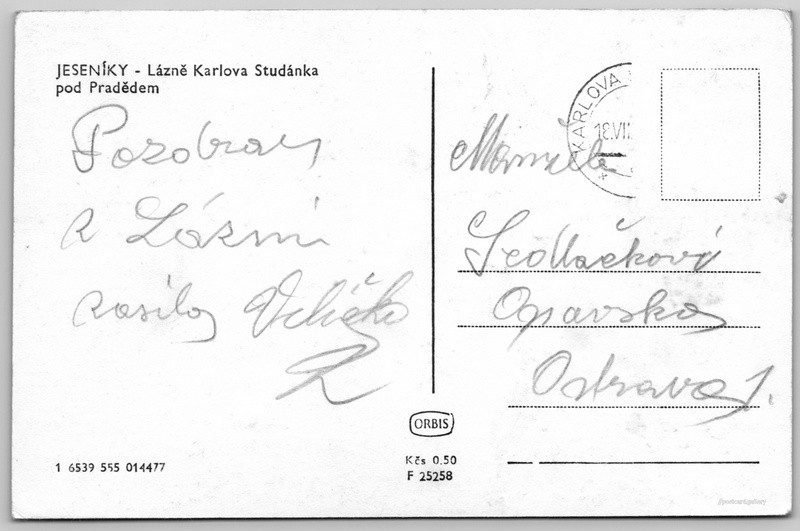 JESENÍKY - Lázně Karlova Studánka
pod Pradědem
Pozdrav
z Lázní
zasílá Veličko
KARLOVA
18.VII
Manželé
Sedlačkovi
Opavska
Ostrava 1.
ORBIS
1 6539 555 014477
Kčs 0.50
F 25258